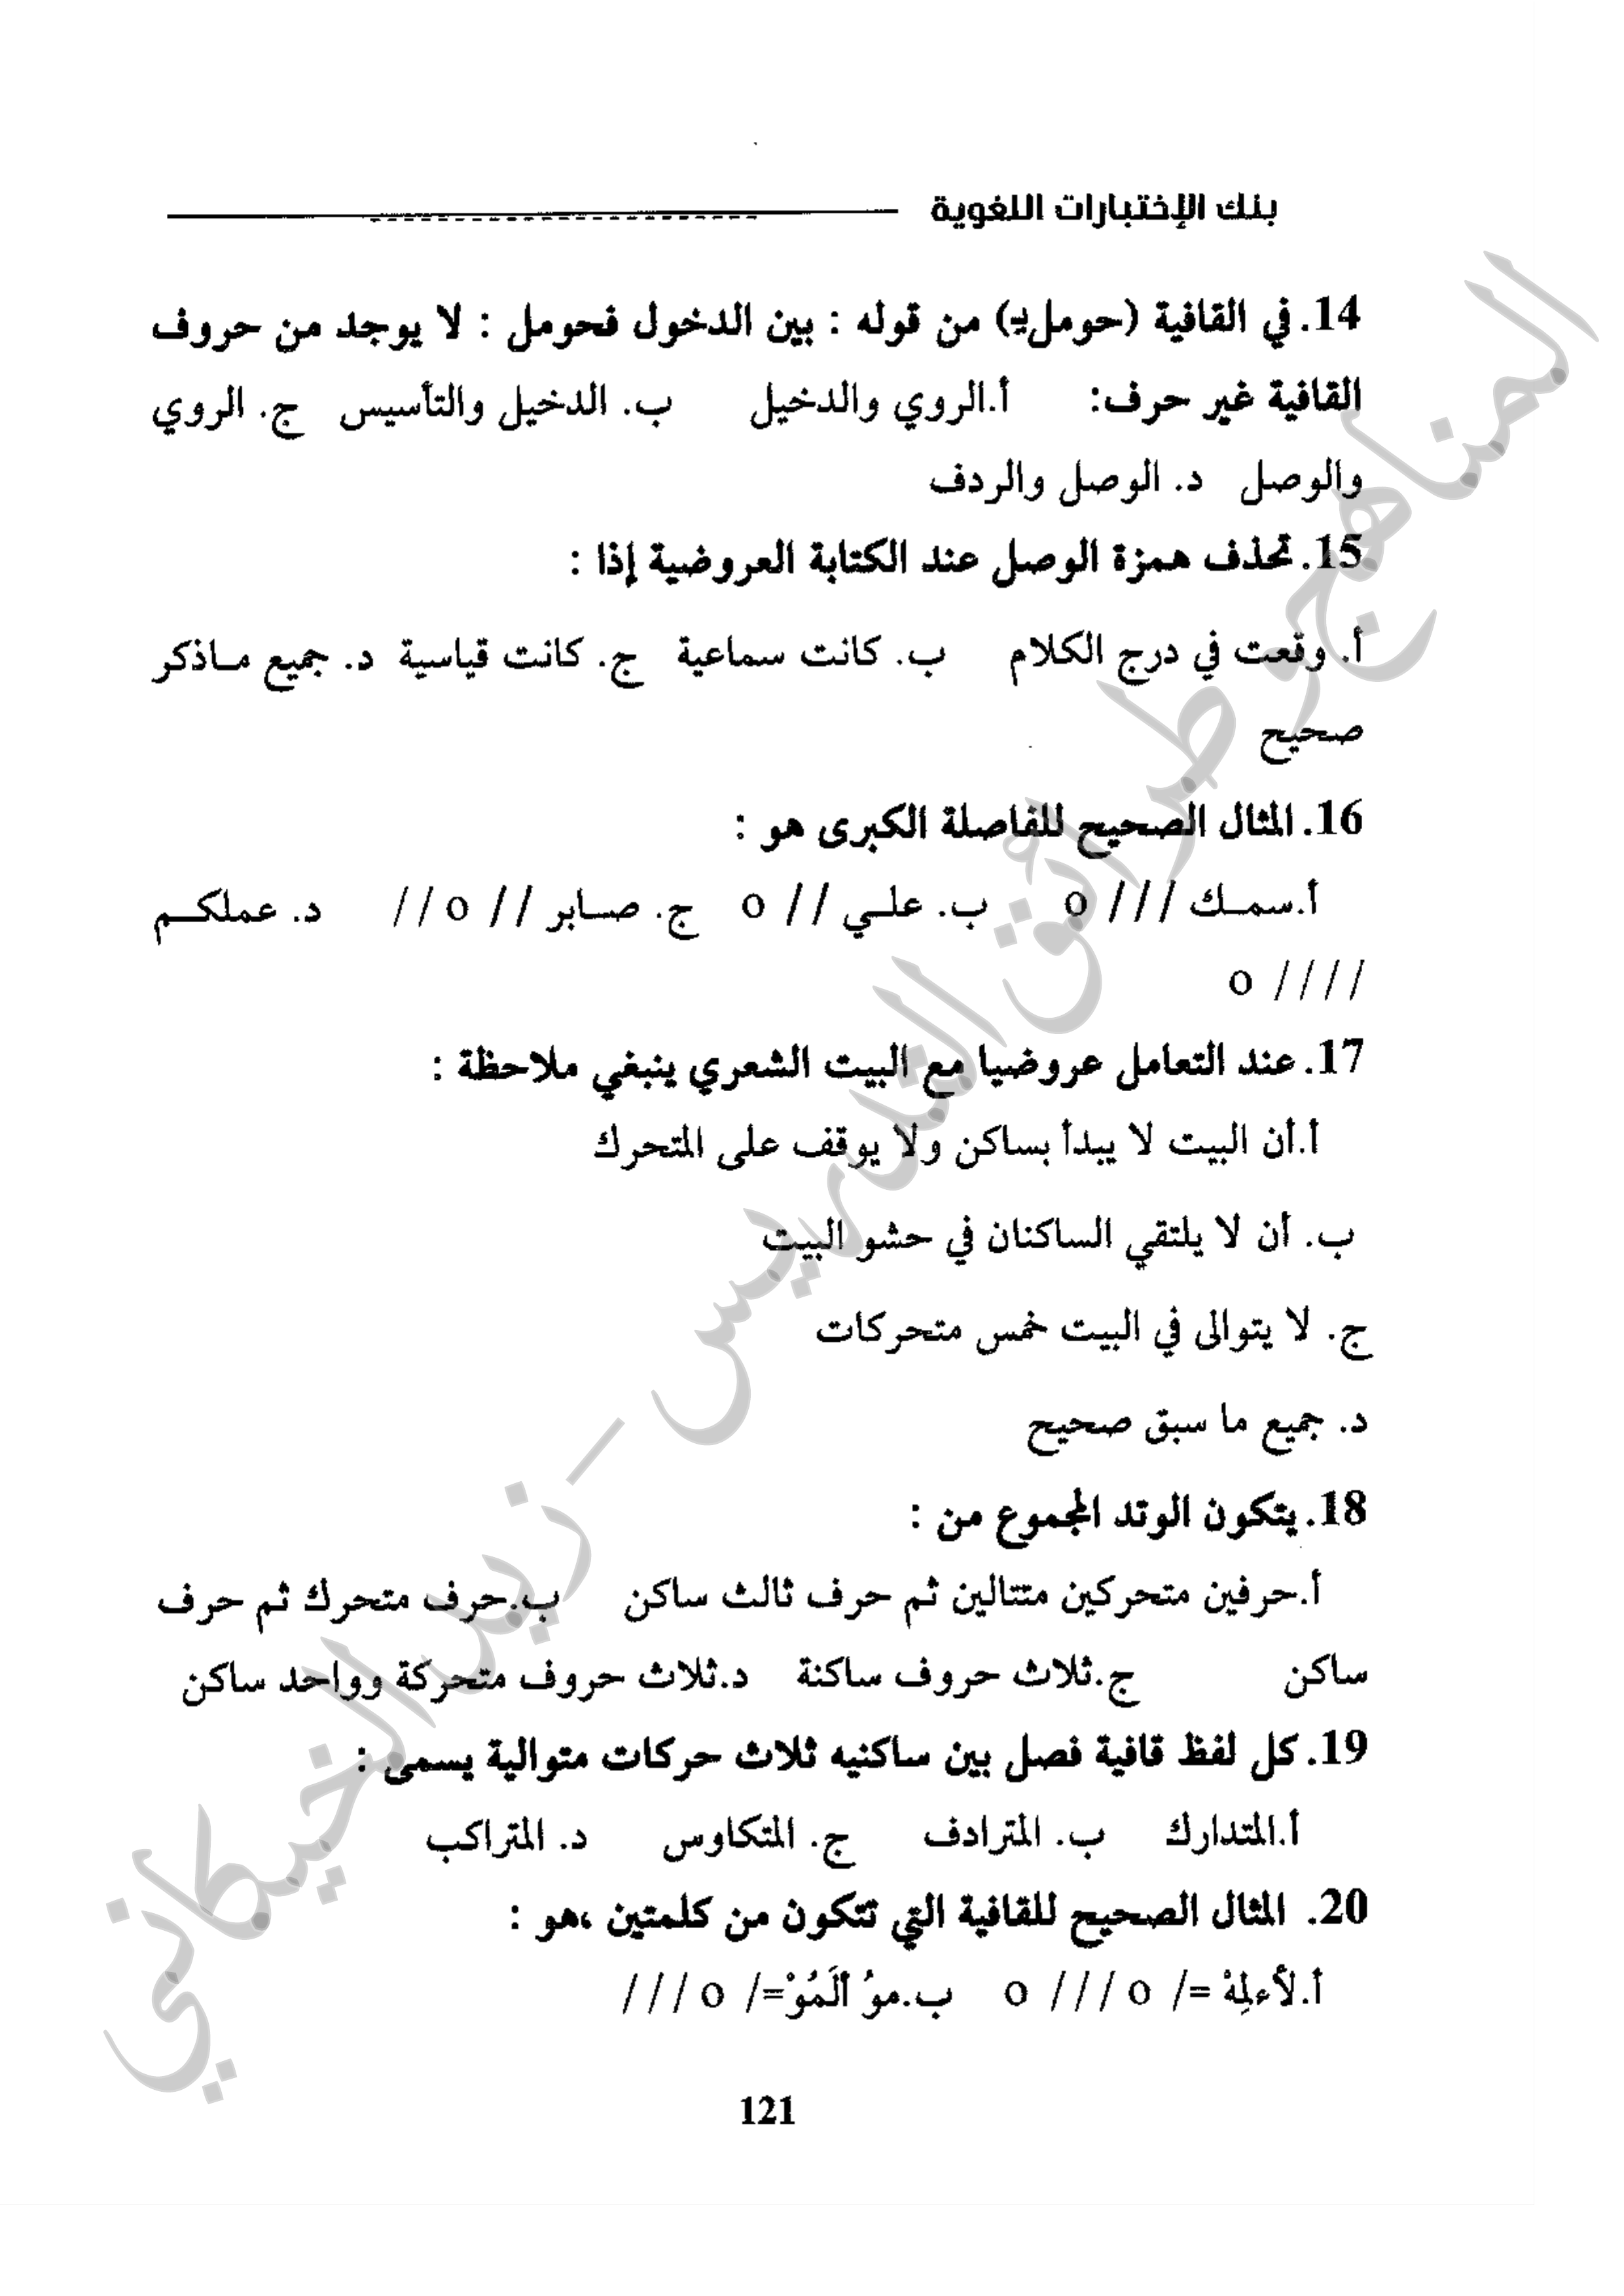 بنك الإختبارات اللغوية
14. في القافية (حوملـِ) من قوله : بين الدخول فحومل : لا يوجد من حروف
القافية غير حرف: أ.الروي والدخيل ب. الدخيل والتأسيس ج. الروي
والوصل د. الوصل والردف
15. تحذف همزة الوصل عند الكتابة العروضية إذا :
أ. وقعت في درج الكلام ب. كانت سماعية ج. كانت قياسية د. جميع ماذكر
صحيح
16. المثال الصحيح للفاصلة الكبرى هو :
أ.سمك / / / o ب. علي / / o ج. صابر / / o / / د. عملكم
/ / / / o
17. عند التعامل عروضيا مع البيت الشعري ينبغي ملاحظة :
أ.أن البيت لا يبدأ بساكن ولا يوقف على المتحرك
ب. أن لا يلتقي الساكنان في حشو البيت
ج. لا يتوالى في البيت خمس متحركات
د. جميع ما سبق صحيح
18. يتكون الوتد المجموع من :
أ.حرفين متحركين متتالين ثم حرف ثالث ساكن ب.حرف متحرك ثم حرف
ساكن ج.ثلاث حروف ساكنة د.ثلاث حروف متحركة وواحد ساكن
19. كل لفظ قافية فصل بين ساكنيه ثلاث حركات متوالية يسمى :
أ.المتدارك ب. المترادف ج. المتكاوس د. المتراكب
20. المثال الصحيح للقافية التي تتكون من كلمتين ،هو :
أ.لأءلِمْ =/ o / / / o ب.موُ ألَمُوْ=/ o / / /
121
المناهج وطرائق التدريس - زيد الخيكاني